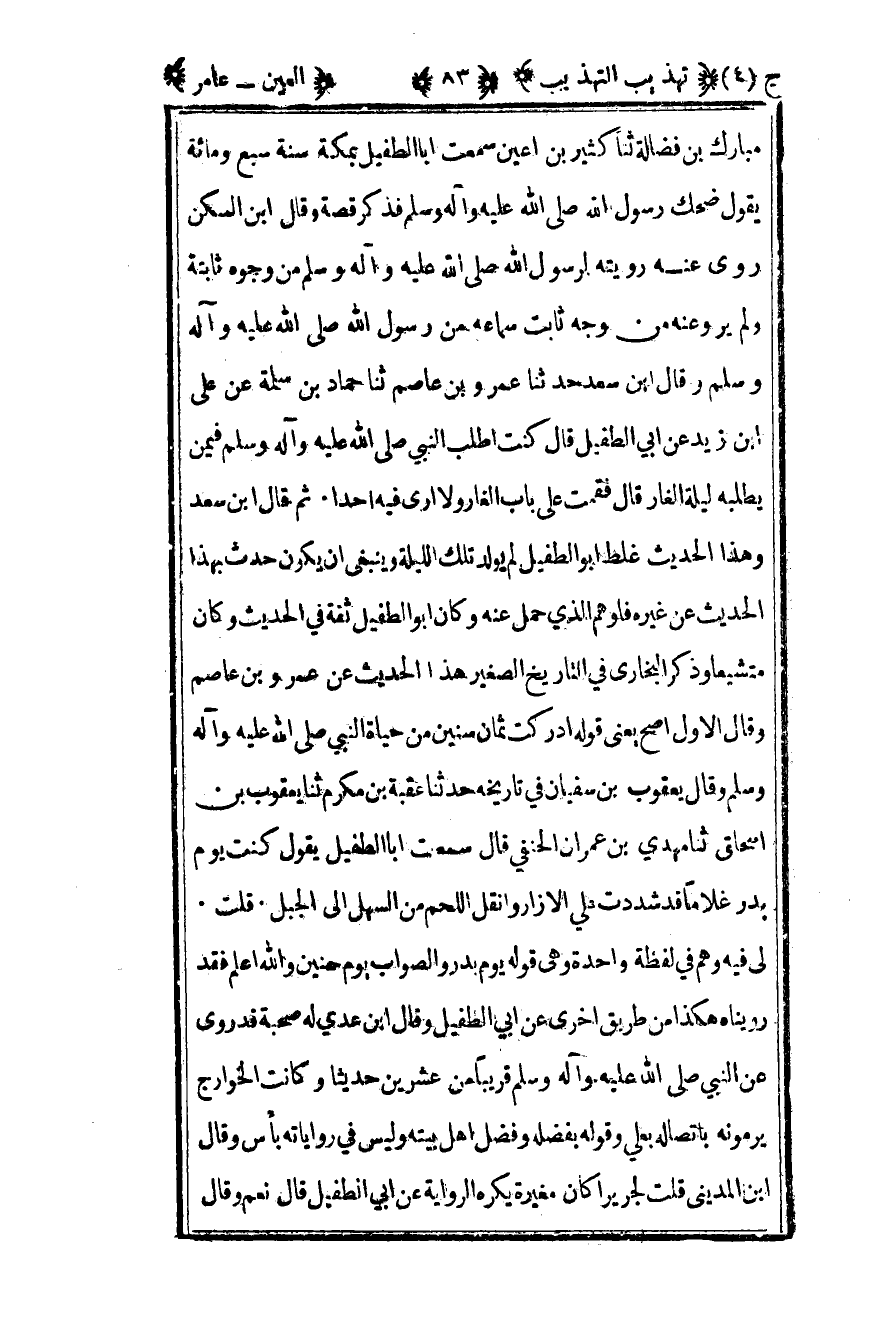 ج (٤) ﴿ تهذيب التهذيب ﴾ ﴿ ٨٣ ﴾ ﴿ العين ــ عامر ﴾
مبارك بن فضالة ثنا كثير بن اعين سمعت ابا الطفيل بمكة سنة سبع ومائة
يقول ضحك رسول الله صلى الله عليه وآله وسلم فذكر قصة وقال ابن السكن
روى عنــه رويته لرسول الله صلى الله عليه وآله وسلم من وجوه ثابتة
ولم يرو عنه من وجه ثابت سماعه من رسول الله صلى الله عليه وآله
وسلم وقال ابن سعد حدثنا عمرو بن عاصم ثنا حماد بن سلمة عن على
ابن زيد عن ابي الطفيل قال كنت اطلب النبي صلى الله عليه وآله وسلم فيمن
يطلبه ليلة الغار قال فقمت على باب الغار ولا ارى فيه احدا ٠ ثم قال ابن سعد
وهذا الحديث غلط ابو الطفيل لم يولد تلك الليلة وينبغى ان يكون حدث بهذا
الحديث عن غيره فاوهم الذي حمل عنه وكان ابو الطفيل ثقة في الحديث وكان
متشيعا وذكر البخارى في التاريخ الصغير هذا الحديث عن عمرو بن عاصم
وقال الاول اصح يعنى قوله ادركت ثمان سنين من حياة النبي صلى الله عليه وآله
وسلم وقال يعقوب بن سفيان في تاريخه حدثنا عقبة بن مكرم ثنا يعقوب بن
اسحاق ثنا مهدي بن عمران الحنفي قال سمعت ابا الطفيل يقول كنت يوم
بدر غلاما قد شددت علي الازار وانقل اللحم من السهل الى الجبل ٠ قلت ٠
لى فيه وهم في لفظة واحدة وهى قوله يوم بدر والصواب يوم حنين والله اعلم فقد
رويناه هكذا من طريق اخرى عن ابي الطفيل وقال ابن عدي له صحبة قد روى
عن النبي صلى الله عليه وآله وسلم قريباً من عشرين حديثا وكانت الخوارج
يرمونه باتصاله بعلي وقوله بفضله وفضل اهل بيته وليس في رواياته بأس وقال
ابن المدينى قلت لجرير اكان مغيرة يكره الرواية عن ابي الطفيل قال نعم وقال